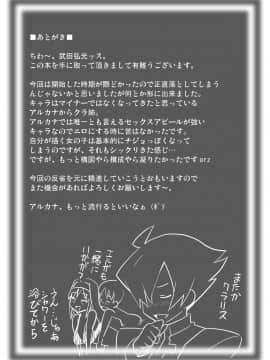 ■あとがき■
ちわ〜。武田弘光ッス。
この本を手に取って頂きまして有難うございます。
今回は開始した時期が際どかったので正直落としてしまう
んじゃないかと思いましたが何とか形に出来ました。
キャラはマイナーではなくなってきたと思っている
アルカナからクラ姉。
アルカナでは唯一とも言えるセックスアピールが強い
キャラなのでエロにする時に苦はなかったです。
自分が描く女の子は基本的にナジョっぽくなって
しまうのですが、それもシックリきた感じ…
ですが、もっと構図やら構成やら凝りたかったです orz
今回の反省を元に精進していこうとおもいますので
また機会があればよろしくお願いします〜。
アルカナ、もっと流行るといいなぁ
またか
クラリス
ここからも
一緒に
いかが?
うん…じゃあ
シャワーを
浴びてから